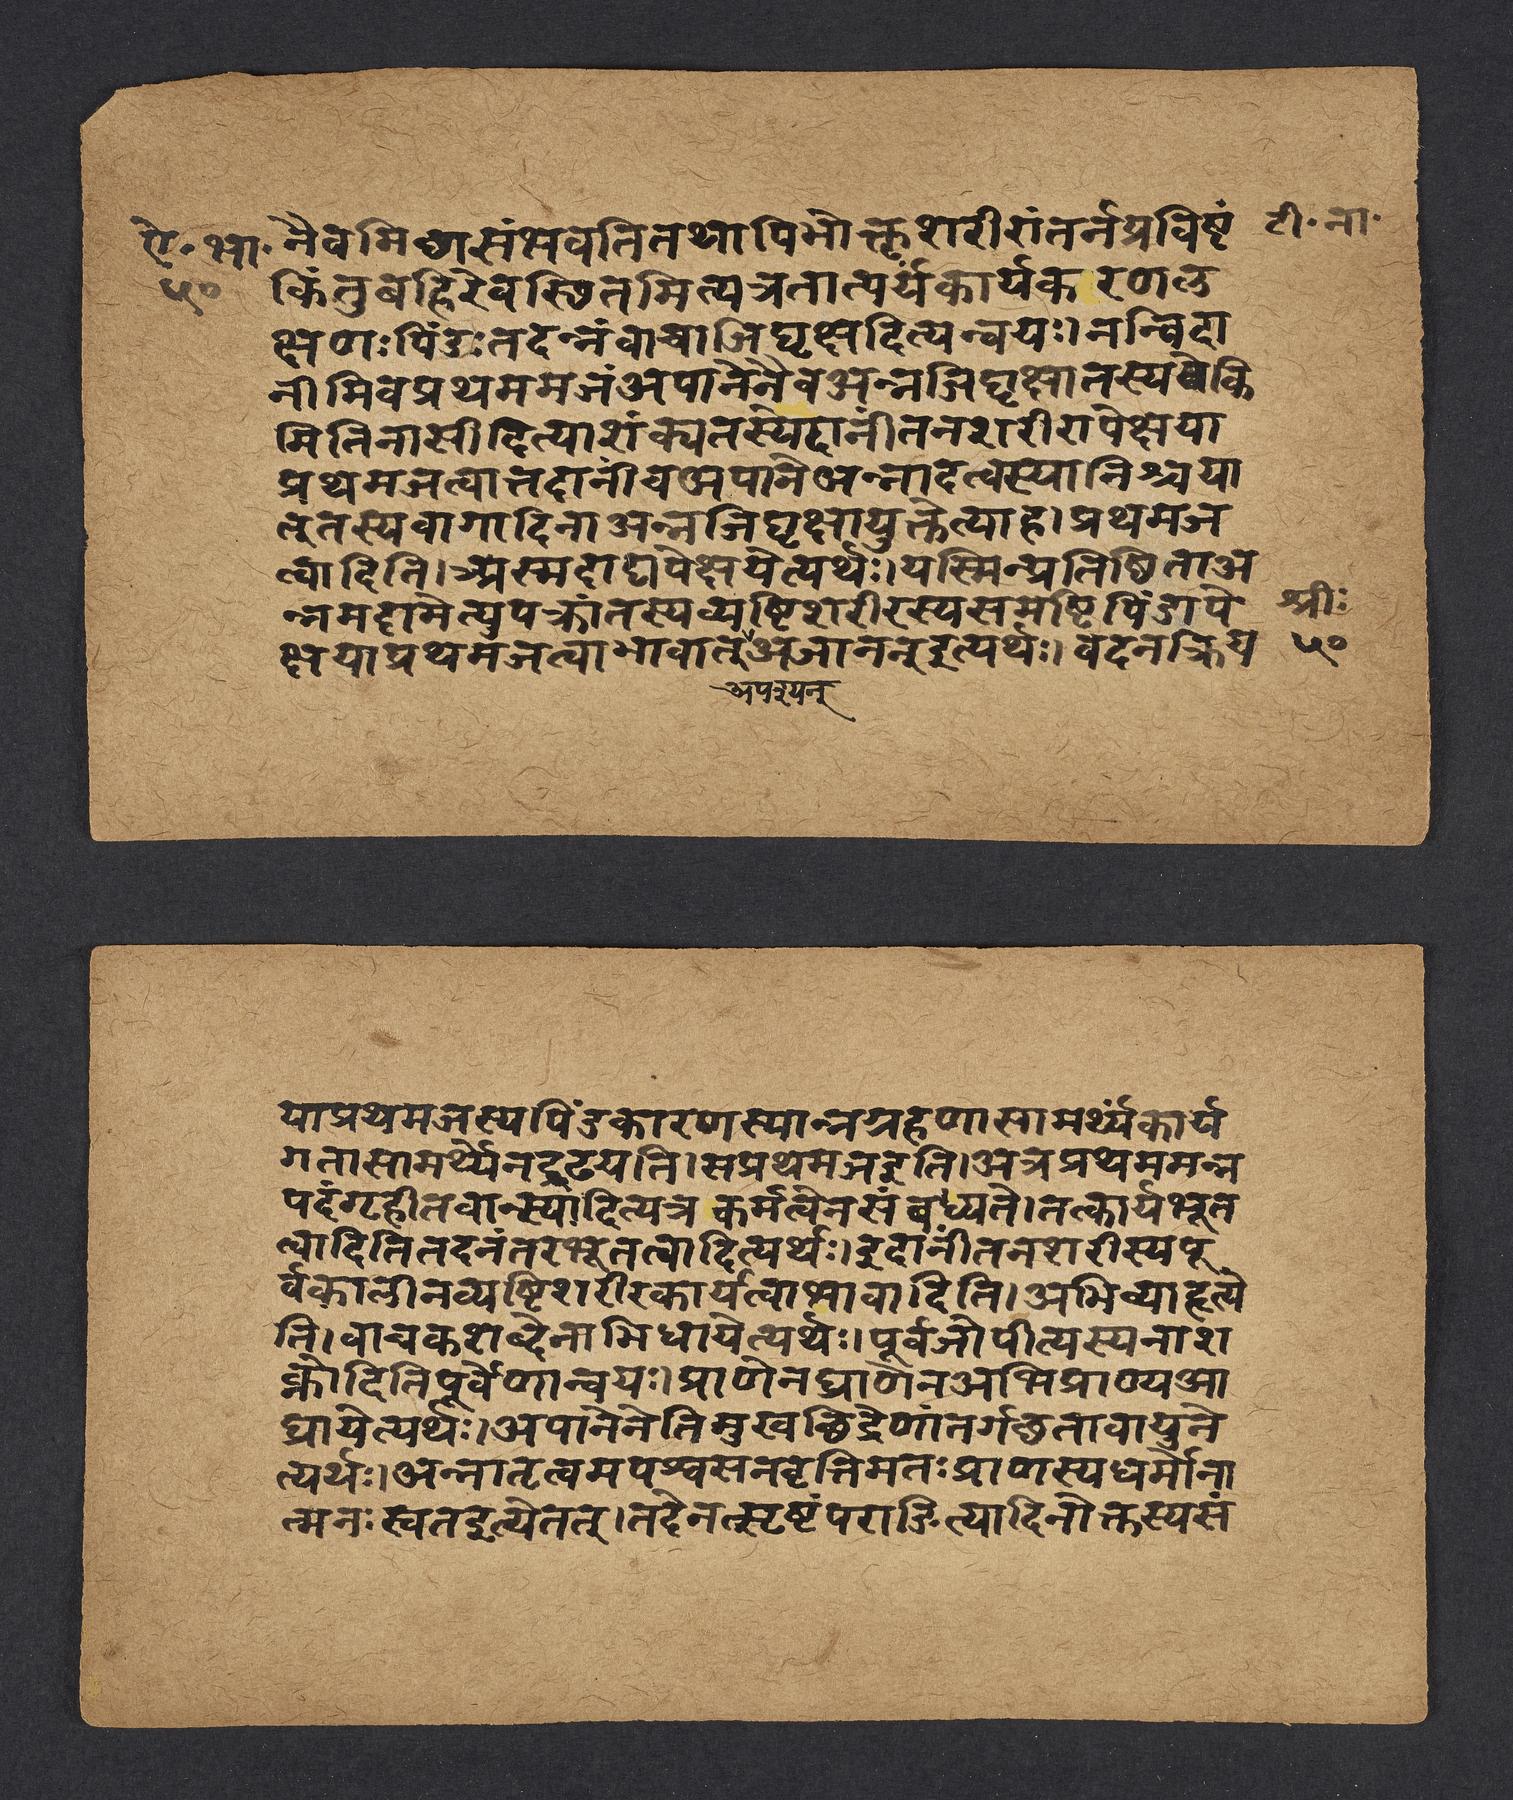 ऐ॰भा॰
५०
टी॰ना॰
नैवमिछासंभवतितथापिभोक्तृशरीरांतर्नप्रविष्टं
किंतुबहिरेवस्थितमित्यत्रतात्पर्यंकार्यकरणल
क्षणःपिंडःतदन्नंवाचाजिघृक्षदित्यन्वयः।नन्विदा
नीमिवप्रथममजंअपानेनैवअन्नजिघृक्षातस्य
मितिनासीदित्याशंक्यतस्येदानींतनशरीरापेक्षया
प्रथमजत्वात्तदानींचअपानेअन्नादत्वस्यानिश्चया
त्तंतस्यवागादिनाअन्नजिघृक्षायुक्तेत्याह।प्रथमज
त्वादिति।अस्मदाद्यपेक्षयेत्यर्थः।यस्मिन्प्रतिष्ठिताअ
न्नमदामेत्युपक्रांतस्यव्यष्टिशरीरस्यसमष्टिपिंडापे
क्षयाप्रथमजत्वाभावात्अजाननइत्यर्थः।वदनक्रिय
श्रीः
५०
अपश्यन्
याप्रथमजस्यपिंडकारणस्यान्नग्रहणासामर्थ्यंकार्य
गतासामर्थ्येनद्रढयति।सप्रथमजइति।अत्रप्रथममन्न
पदंगृहीतवान्स्यादित्यत्रकर्मत्वेनसंबध्यते।तत्कार्यभूत
त्वादितितदनंतरभूतत्वादित्यर्थः।इदानींतनशरीस्यपू
र्वकालीनव्यष्टिशरीरकार्यत्वाभावादिति।अभिव्याहृत्ये
ति।वाचकशब्देनाभिधायेत्यर्थः।पूर्वजोपीत्यस्यनाश
क्नोदितिपूर्वेणान्वयः।प्राणेनघ्राणेनअभिप्राण्यआ
घ्रायेत्यर्थः।अपानेनेतिमुखछिद्रेणांतर्गछतावायुने
त्यर्थः।अन्नातृत्वमपश्वसनवृत्तिमतःप्राणस्यधर्मोना
त्मनःस्वतइत्येतत्।तदेनत्सृष्टंपराङित्यादिनोक्तस्यसं